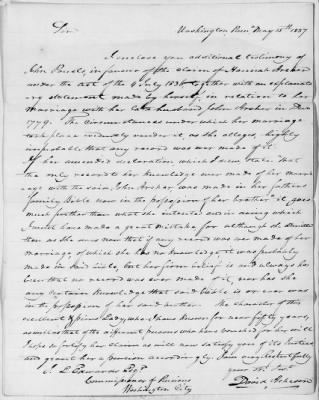 Sir Washington Penn May 15th 1837
I enclose you additional testimony of
John in favour of the claim of Hannah Archer
under the act of the 4 July 1836 together with an explana
tory statement made by herself in relation to her
Marriage with her late husband John Archer in Decr
1779. The circumstances under which her marriage
took place render it, as she alleges, highly
improbable that any record was ever made of it.
If her amended declaration which I sent states that
the only record to her knowledge ever made of her marri
age with the said John Archer was made in her fathers
family Bible now in the possession of her brother it goes
much further than what she intended and in doing which
I must have made a great mistake for although she admitted
then as she does now that if any record was ever made of her
marriage of which she has no knowledge, it was probably
made in said bible, but her firm belief is and always has
been that no record was ever made of it, nor has she
any certain knowledge that said bible is or ever was
in the possession of her said brother. The character of this
excellent & pious Lady, who I have known for near fifty years,
as well as that of the different persons who have vouched for her will
I hope so fortify her claim as will now satisfy you of its Justice
and grant her a pension accordingly. I am very respectfully
your Obt Sert
J. L. Edwards Esqr David Acheson
Commissioner of Pensions
Washington City